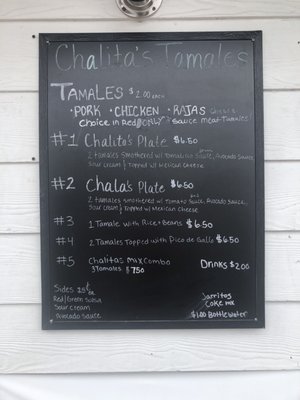 Chalita's Tamales
TAMALES $2.00 each
• PORK • CHICKEN • RAJAS
Choice in Red Only Sauce Meat Tamales
#1 Chalito's Plate $6.50
2 tamales smothered w/ Tomato Sauce, Avocado Sauce,
Sour cream & topped w/ Mexican Cheese
#2 Chala's Plate $6.50
2 tamales smothered w/ Tomato Sauce, Avocado,
Sour cream & topped w/ Mexican Cheese
#3 1 Tamale with Rice + Beans $6.50
#4 2 Tamales Topped with Pico de Gallo $6.50
#5 Chalitas Mix Combo Drinks $2.00
3 Tamales $7.50
Sides
Red/Green Salsa
Sour cream
Avocado Sauce
Jarritos
Coke mx
$1.00 Bottle water